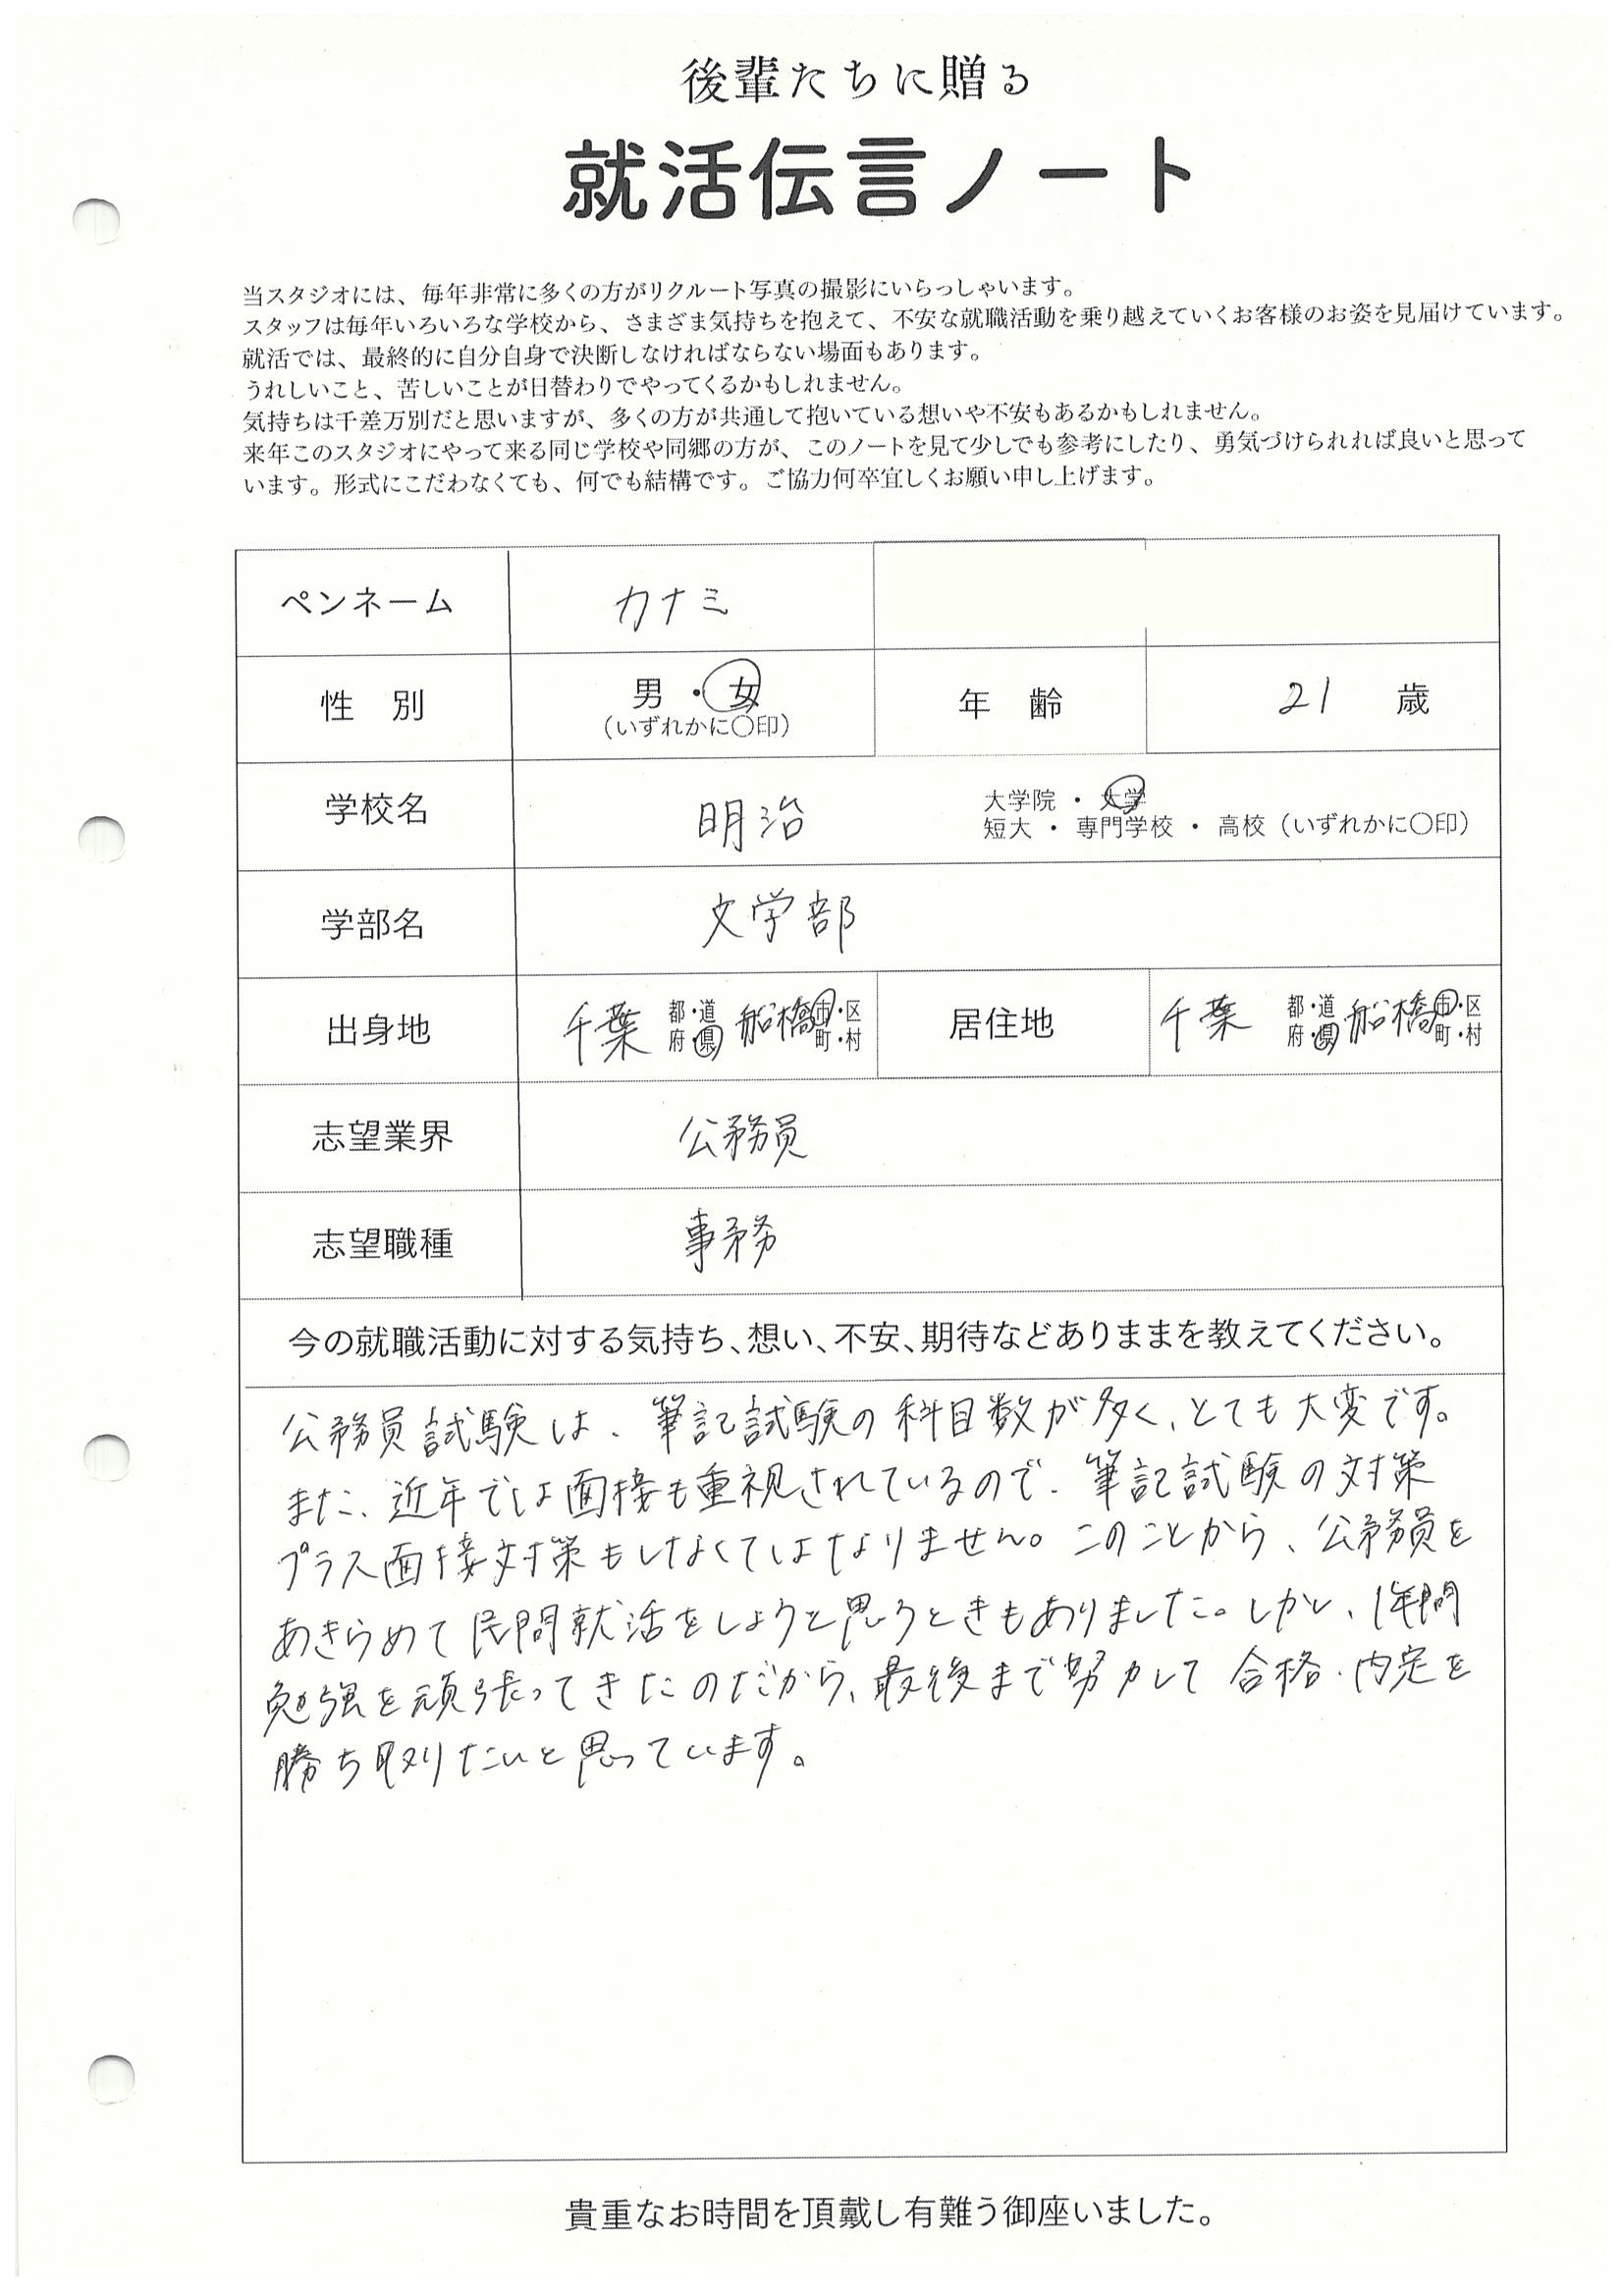 後輩たちに贈る
就活伝言ノート
当スタジオには、毎年非常に多くの方がリクルート写真の撮影にいらっしゃいます。
スタッフは毎年いろいろな学校から、さまざま気持ちを抱えて、不安な就職活動を乗り越えていくお客様のお姿を見届けています。
就活では、最終的に自分自身で決断しなければならない場面もあります。
うれしいこと、苦しいことが日替わりでやってくるかもしれません。
気持ちは千差万別だと思いますが、多くの方が共通して抱いている想いや不安もあるかもしれません。
来年このスタジオにやって来る同じ学校や同郷の方が、このノートを見て少しでも参考にしたり、勇気づけられれば良いと思って
います。形式にこだわなくても、何でも結構です。ご協力何卒宜しくお願い申し上げます。
ペンネーム カナミ
性 別 男 ・ 女 年 齢 21 歳
(いずれかに〇印)
学校名 明治 大学院 ・ 大学
短大 ・ 専門学校 ・ 高校 (いずれかに〇印)
学部名 文学部
出身地 千葉 都・道 府・県 船橋 市・区 町・村 居住地 千葉 都・道 府・県 船橋 市・区 町・村
志望業界 公務員
志望職種 事務
今の就職活動に対する気持ち、想い、不安、期待などありままを教えてください。
公務員試験は、筆記試験の科目数が多く、とても大変です。
また、近年では面接も重視されているので、筆記試験の対策
プラス面接対策もしなくてはなりません。このことから、公務員を
あきらめて民間就活をしようと思うときもありました。しかし、1年間
勉強を頑張ってきたのだから、最後まで努力して合格・内定を
勝ち取りたいと思っています。
貴重なお時間を頂戴し有難う御座いました。